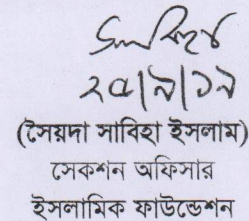 ২৫/৯/১৯
(সৈয়দা সাবিহা ইসলাম)
সেকশন অফিসার
ইসলামিক ফাউন্ডেশন